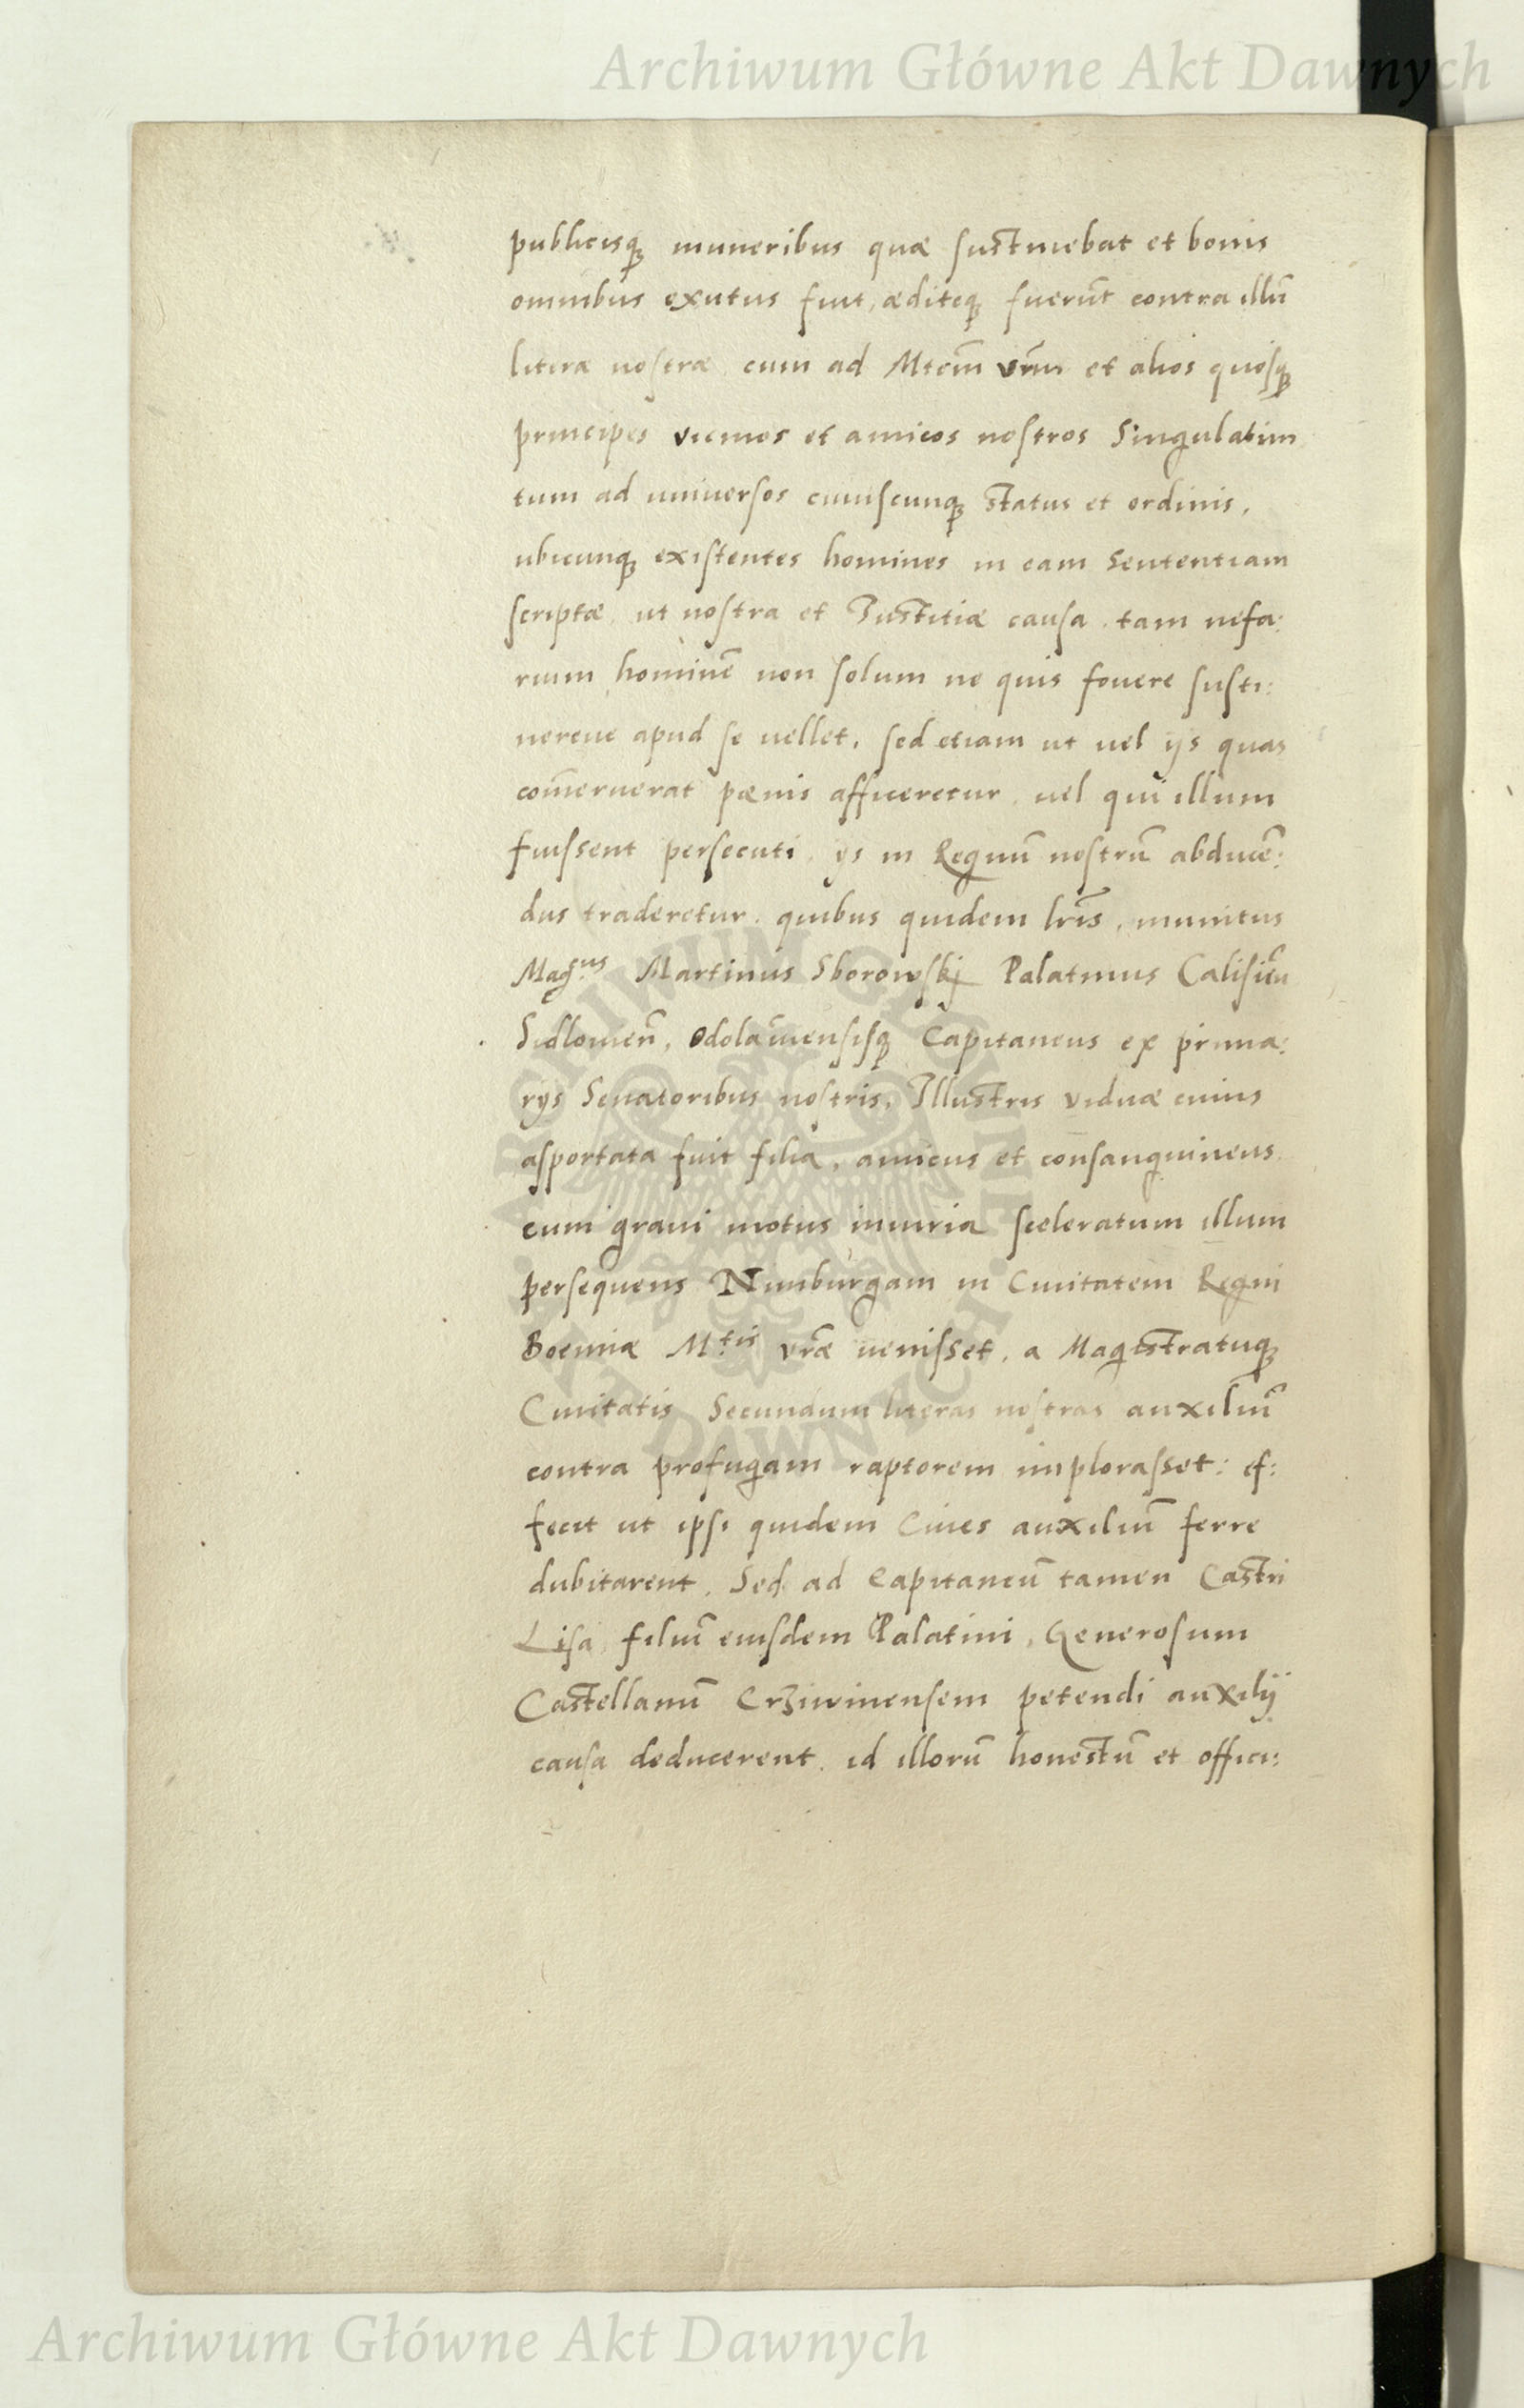 Archiwum Główne Akt Dawnych
publicisq; muneribus quæ sustinebat et bonis
omnibus exutus fuit, æditeq; fuerūt contra illū
literæ nostræ, cum ad Mtem̄ vrm̄ et alios quosq;
principes vicinos et amicos nostros Singulatim
tum ad universos cuiuscunq; status et ordinis,
ubicunq; existentes homines in eam Sententiam
scriptæ, ut nostra et Iustitiæ causa, tam nefa:
rium hominē non solum ne quis fovere susti:
nereue apud se uellet, sed etiam ut uel ijs quas
com̄eruerat pœnis afficeretur, uel qui illum
fuissent persecuti, ijs in Regnū nostrū abducē:
dus traderetur. quibus quidem lris̄, munitus
Mag.cus Martinus Sborowskj Palatinus Calisien̄
Sidlouien̄, Odolauiensisq; Capitaneus ex prima:
rijs Senatoribus nostris, Illustris viduæ cuius
asportata fuit filia, amicus et consanguineus
cum graui motus iniuria sceleratum illum
persequens Nimburgam in Ciuitatem Regni
Boemiæ M.tis vrǣ uenisset, a Magistratuq;
Ciuitatis Secundum literas nostras auxiliū
contra profugam raptorem implorasset: ef:
fecit ut ipsi quidem Ciues auxiliū ferre
dubitarent. Sed ad Capitaneū tamen Castri
Lisa, filiū eiusdem Palatini, Generosum
Castellanū Crziwinensem petendi auxilij
causa deducerent. id illorū honestū et offici:
Archiwum Główne Akt Dawnych